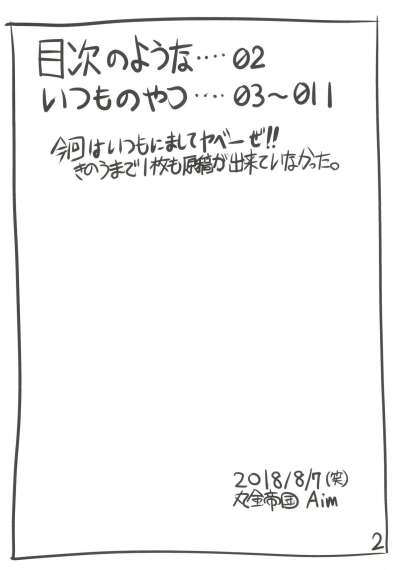 目次のような‥‥02
いつものやつ‥‥03〜011
今回はいつもにましてヤベーぜ!!
きのうまで1枚も原稿が出来ていなかった。
2018/8/7(笑)
丸金帝国 Aim
2